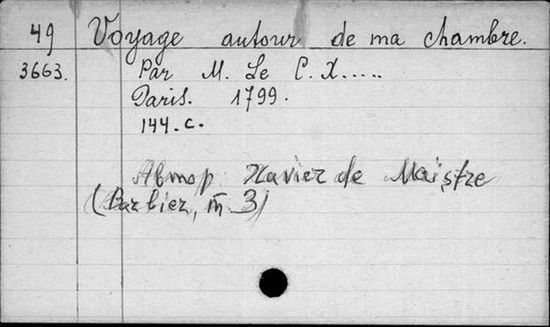 49 Voyage autour de ma chambre.
3663. Par M. Le C. X.....
Paris. 1799.
144.c.
Автор Xavier de Maistre
(Barbier, т 3)